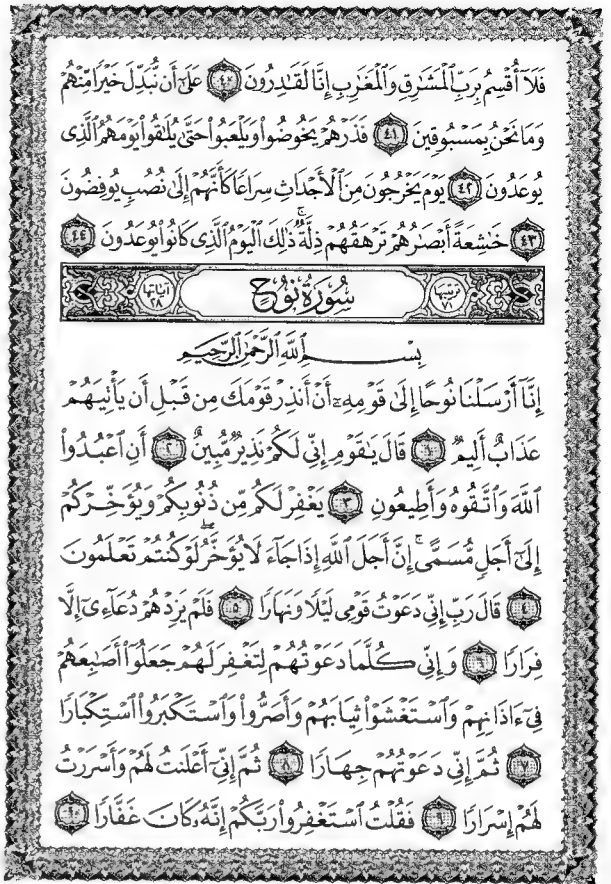 فَلَآ أُقۡسِمُ بِرَبِّ ٱلۡمَشَٰرِقِ وَٱلۡمَغَٰرِبِ إِنَّا لَقَٰدِرُونَ ٤٠ عَلَىٰٓ أَن نُّبَدِّلَ خَيۡرٗا مِّنۡهُمۡ
وَمَا نَحۡنُ بِمَسۡبُوقِينَ ٤١ فَذَرۡهُمۡ يَخُوضُواْ وَيَلۡعَبُواْ حَتَّىٰ يُلَٰقُواْ يَوۡمَهُمُ ٱلَّذِي
يُوعَدُونَ ٤٢ يَوۡمَ يَخۡرُجُونَ مِنَ ٱلۡأَجۡدَاثِ سِرَاعٗا كَأَنَّهُمۡ إِلَىٰ نُصُبٖ يُوفِضُونَ
٤٣ خَٰشِعَةً أَبۡصَٰرُهُمۡ تَرۡهَقُهُمۡ ذِلَّةٞۚ ذَٰلِكَ ٱلۡيَوۡمُ ٱلَّذِي كَانُواْ يُوعَدُونَ ٤٤
ترتيبها ٧١ سُورَةُ نُوحٍ آياتها ٢٨
بِسۡمِ ٱللَّهِ ٱلرَّحۡمَٰنِ ٱلرَّحِيمِ
إِنَّآ أَرۡسَلۡنَا نُوحًا إِلَىٰ قَوۡمِهِۦٓ أَنۡ أَنذِرۡ قَوۡمَكَ مِن قَبۡلِ أَن يَأۡتِيَهُمۡ
عَذَابٌ أَلِيمٞ ١ قَالَ يَٰقَوۡمِ إِنِّي لَكُمۡ نَذِيرٞ مُّبِينٌ ٢ أَنِ ٱعۡبُدُواْ
ٱللَّهَ وَٱتَّقُوهُ وَأَطِيعُونِ ٣ يَغۡفِرۡ لَكُم مِّن ذُنُوبِكُمۡ وَيُؤَخِّرۡكُمۡ
إِلَىٰٓ أَجَلٖ مُّسَمًّىۚ إِنَّ أَجَلَ ٱللَّهِ إِذَا جَآءَ لَا يُؤَخَّرُۖ لَوۡ كُنتُمۡ تَعۡلَمُونَ
٤ قَالَ رَبِّ إِنِّي دَعَوۡتُ قَوۡمِي لَيۡلٗا وَنَهَارٗا ٥ فَلَمۡ يَزِدۡهُمۡ دُعَآءِيٓ إِلَّا
فِرَارٗا ٦ وَإِنِّي كُلَّمَا دَعَوۡتُهُمۡ لِتَغۡفِرَ لَهُمۡ جَعَلُوٓاْ أَصَٰبِعَهُمۡ
فِيٓ ءَاذَانِهِمۡ وَٱسۡتَغۡشَوۡاْ ثِيَابَهُمۡ وَأَصَرُّواْ وَٱسۡتَكۡبَرُواْ ٱسۡتِكۡبَارٗا
٧ ثُمَّ إِنِّي دَعَوۡتُهُمۡ جِهَارٗا ٨ ثُمَّ إِنِّيٓ أَعۡلَنتُ لَهُمۡ وَأَسۡرَرۡتُ
لَهُمۡ إِسۡرَارٗا ٩ فَقُلۡتُ ٱسۡتَغۡفِرُواْ رَبَّكُمۡ إِنَّهُۥ كَانَ غَفَّارٗا ١٠